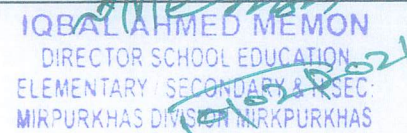 IQBAL AHMED MEMON
DIRECTOR SCHOOL EDUCATION
ELEMENTARY / SECONDARY & H.SEC:
MIRPURKHAS DIVISION MIRKPURKHAS